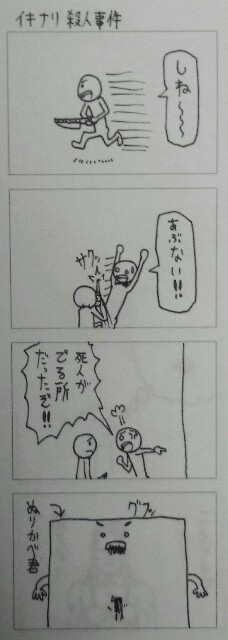 イキナリ 殺人事件
しね〜〜
あぶない!!
サクッ
死人が
でる所
だったぞ!!
ぬりかべ君
グフッ